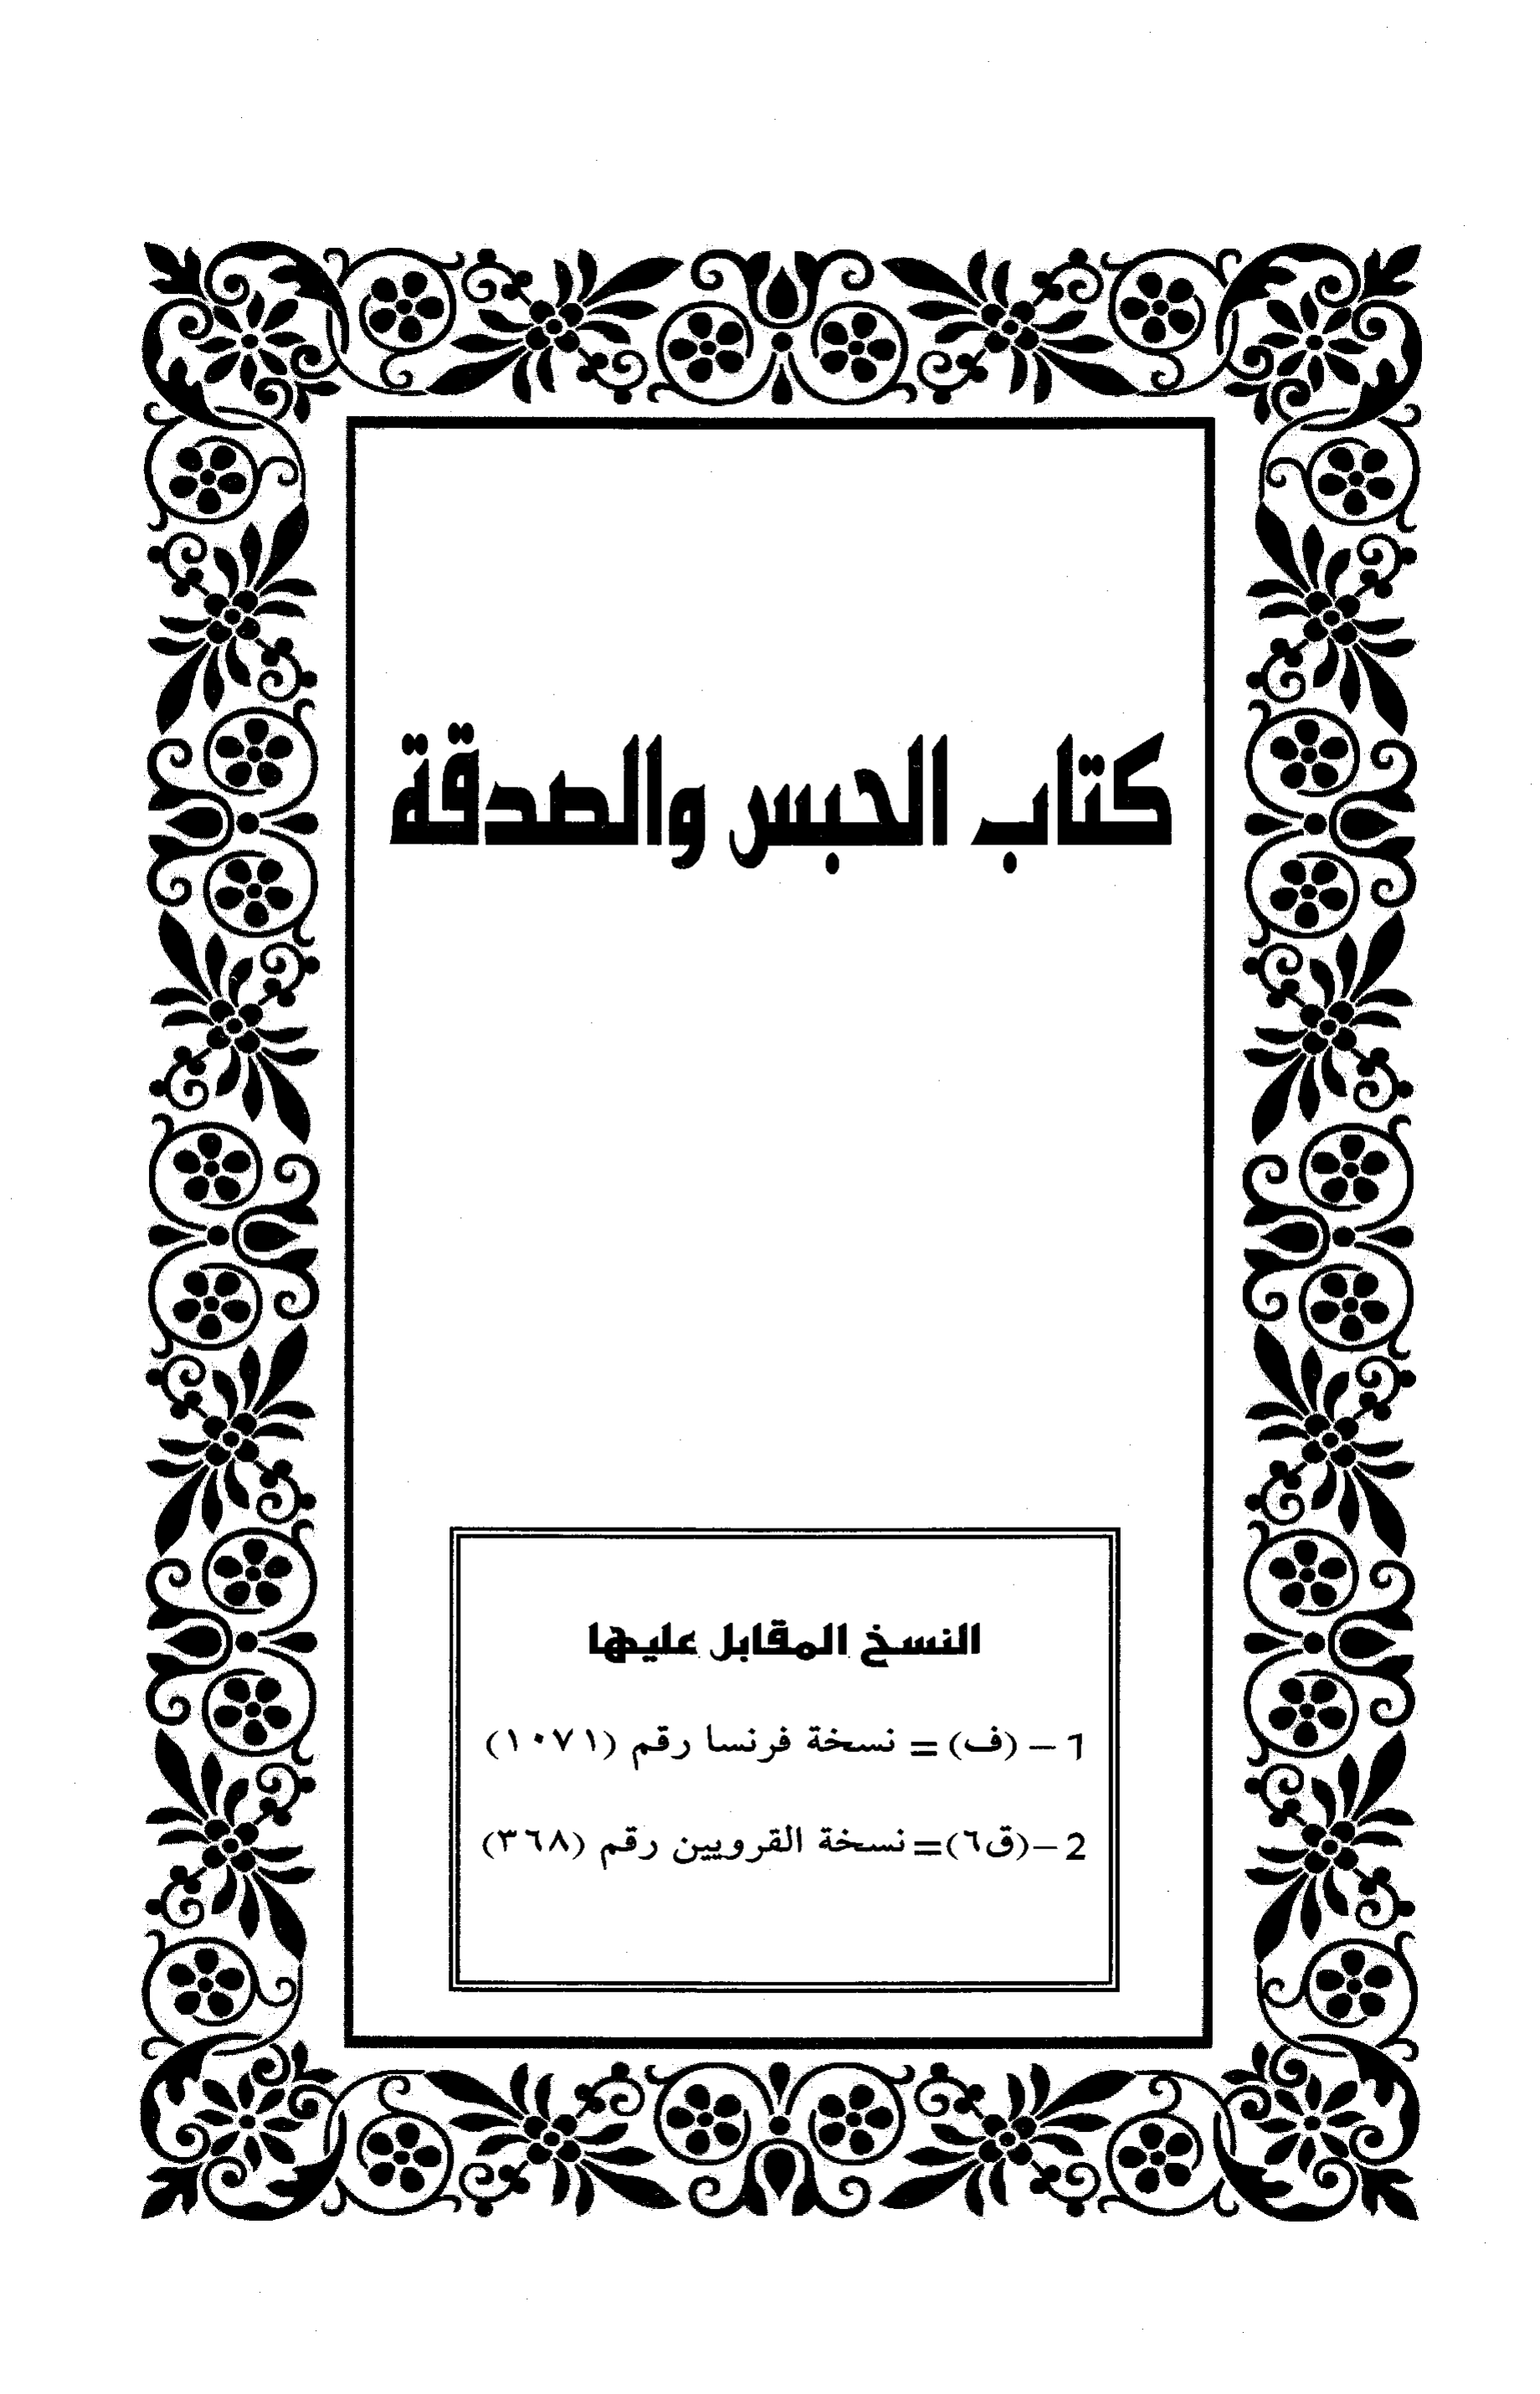 كتاب الحبس والصدقة
النسخ المقابل عليها
1 - (ف) = نسخة فرنسا رقم (١٠٧١)
2 -(ق٦)= نسخة القرويين رقم (٣٦٨)